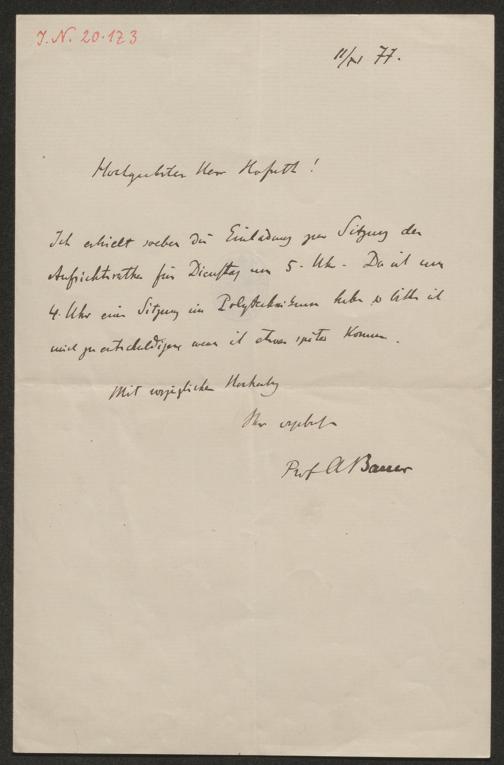 J.N. 20.173
11/XI 77.
Hochgeehrter Herr Hofrath!
Ich erhielt soeben die Einladung zur Sitzung des
Aufsichtsrathes für Dienstag um 5. Uhr. Da ich um
4. Uhr eine Sitzung im Polytechnikum habe so bitte ich
mich zu entschuldigen wenn ich etwas später komme.
Mit vorzüglicher Hochachtg
Ihr ergebenster
Prof ABauer